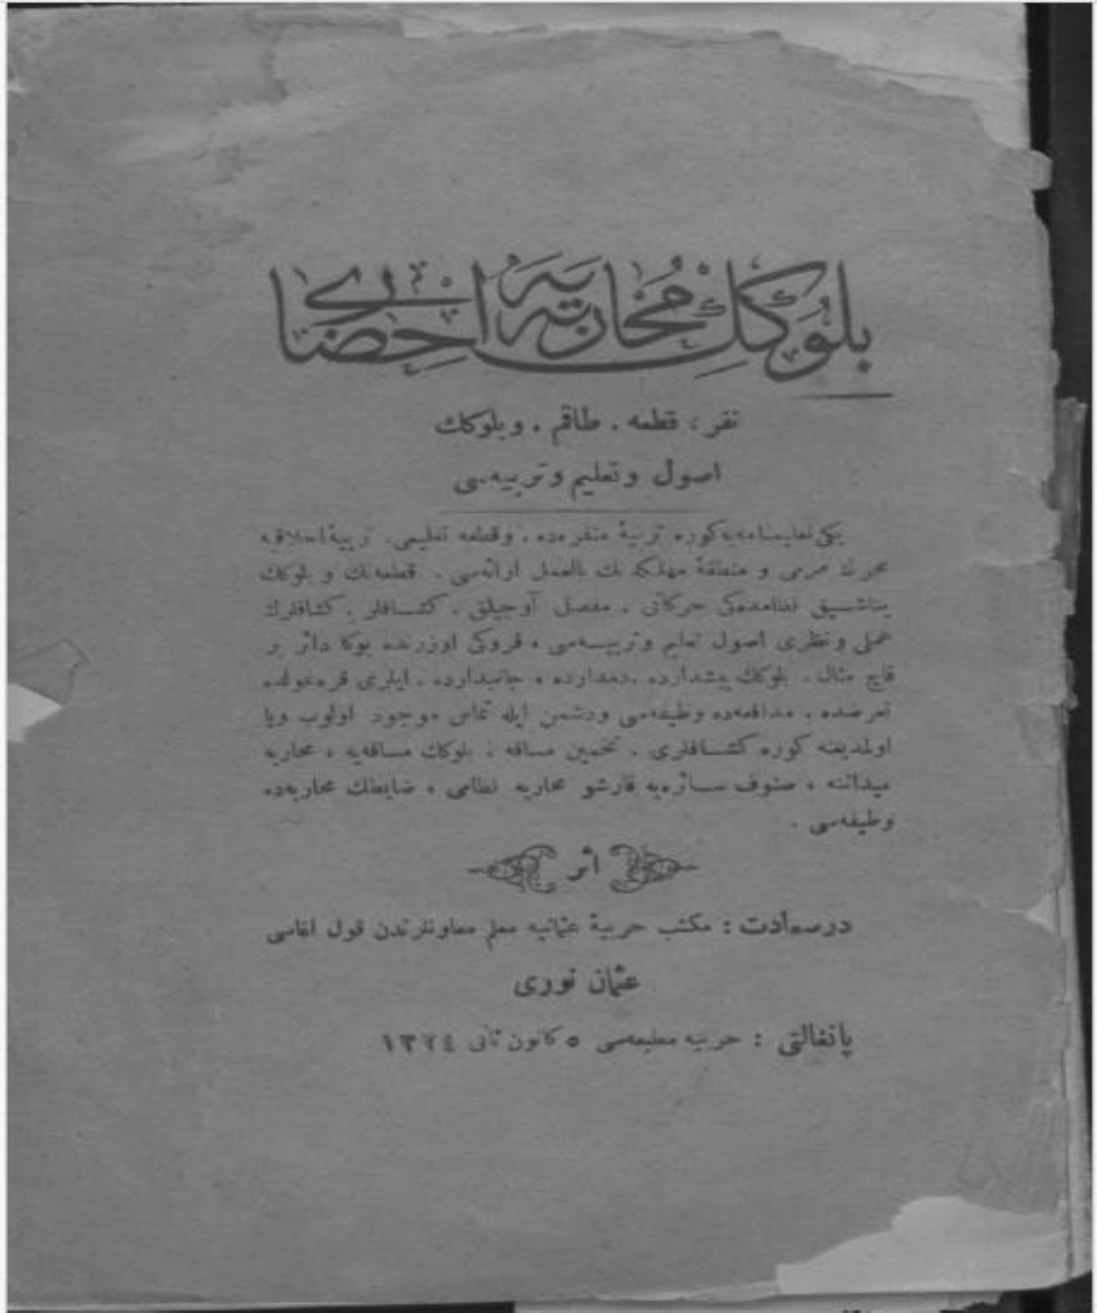 بلوكك محاربه‌يه احضاری
نفر ، قطعه . طاقم . وبلوكك
اصول وتعليم وتربيه‌سی
يكی تعليمنامه‌يه كوره تربيهٔ منفرده . وقطعه تعليمی . تربيهٔ اخلاقيه
محرك مرمی و منطقهٔ مهلكه‌نك بالعمل ارائه‌سی . قطعه‌نك و بلوكك
يناشيق نظامده‌كی حركاتی . مفصل آوجيلق . كشافلر . كشافلرك
عملی ونظری اصول تعليم وتربيه‌سی . قروكی اوزرنده بوكا دائر بر
قاچ مثال . بلوكك پيشدارده . دمدارده . جانبدارده . ايلری قره‌غولده
تعرضده . مدافعه‌ده وظيفه‌سی ودشمن ايله تماس موجود اولوب ويا
اولمديغنه كوره كشافلری . تخمين مسافه . بلوكك مسافه‌يه . محاربه
ميداننه . صنوف سائره‌يه قارشو محاربه نظامی . ضابطك محاربه‌ده
وظيفه‌سی .
اثر
درسعادت : مكتب حربيهٔ عثمانيه معلم معاونلرندن قول اغاسی
عثمان نوری
پانغالتی : حربيه مطبعه‌سی ٥ كانون ثانی ١٣٢٤